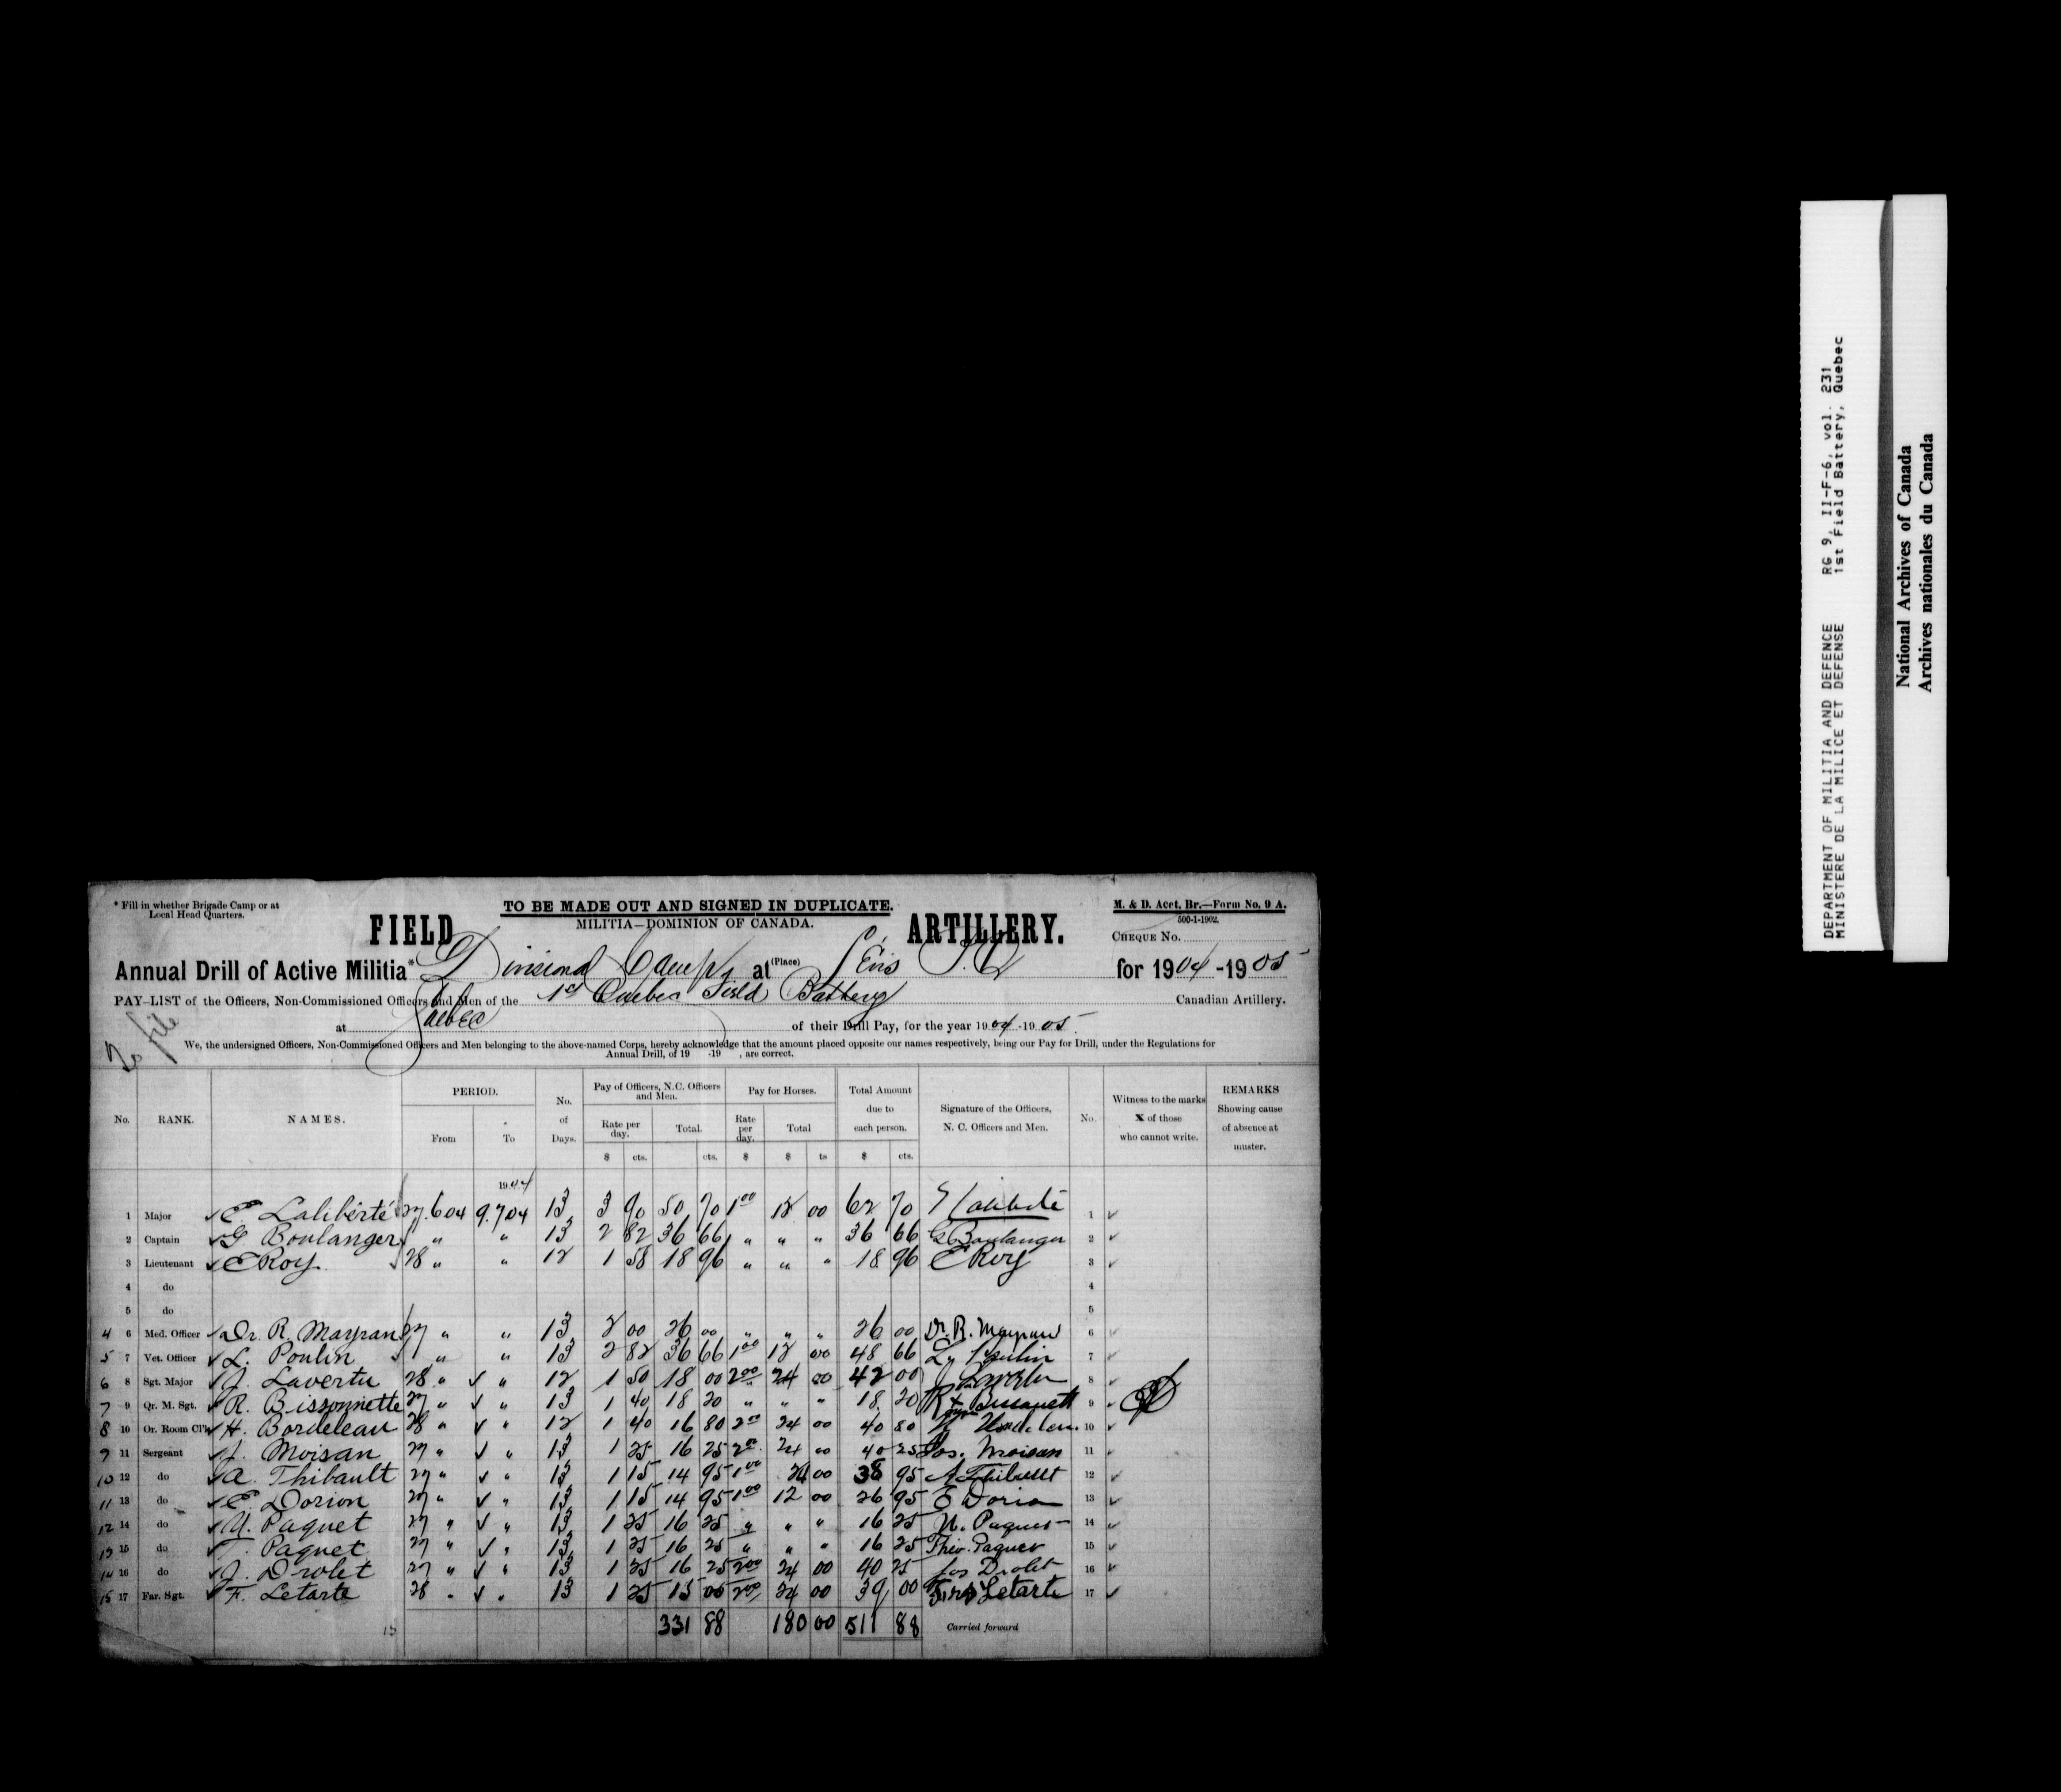 * Fill in whether Brigade Camp or at
Local Head Quarters.
TO BE MADE OUT AND SIGNED IN DUPLICATE.
M. & D. Acct. Br.—Form No. 9 A.
500-1-1902.
FIELD MILITIA—DOMINION OF CANADA. ARTILLERY.
CHEQUE No.
Annual Drill of Active Militia* Divisional Camp at (Place) Lévis P.Q for 1904-1905
PAY-LIST of the Officers, Non-Commissioned Officers and Men of the 1st Quebec Field Battery Canadian Artillery.
at Quebec of their Drill Pay, for the year 1904-1905.
To file
We, the undersigned Officers, Non-Commissioned Officers and Men belonging to the above-named Corps, hereby acknowledge that the amount placed opposite our names respectively, being our Pay for Drill, under the Regulations for
Annual Drill, of 19 -19 , are correct.
No. RANK. NAMES. PERIOD. From To No. of Days. Pay of Officers, N.C. Officers and Men. Rate per day. $ cts. Total. cts. Pay for Horses. Rate per day. $ Total $ ts Total Amount due to each person. $ cts. Signature of the Officers, N. C. Officers and Men. No. Witness to the marks X of those who cannot write. REMARKS Showing cause of absence at muster.
1904
1 Major E. Laliberté 27.604 9.704 13 3 90 50 70 1 00 12 00 62 70 E Laliberté 1
2 Captain G. Boulanger " " 13 2 82 36 66 " " " 36 66 G. Boulanger 2
3 Lieutenant E Roy 28 " " 12 1 58 18 96 " " " 18 96 E Roy 3
4 do 4
5 do 5
4 6 Med. Officer Dr. R. Mayrand 27 " " 13 2 00 26 00 " " " 26 00 Dr. R. Mayrand 6
5 7 Vet. Officer L. Poulin " " 13 2 82 36 66 1 00 12 00 48 66 L. Poulin 7
6 8 Sgt. Major J. Lavertu 28 " " 12 1 50 18 00 2 00 24 00 42 00 J Lavertu 8
7 9 Qr. M. Sgt. R. Bissonnette 27 " " 13 1 40 18 20 " " " 18 20 R Bissonnett 9
8 10 Or. Room Cl'k H. Bordeleau 28 " " 12 1 40 16 80 2 00 24 00 40 80 10
9 11 Sergeant J. Moisan 27 " " 13 1 25 16 25 2 00 24 00 40 25 Jos. Moisan 11
10 12 do A. Thibault 27 " " 13 1 15 14 95 1 00 24 00 38 95 A Thibault 12
11 13 do E. Dorion 27 " " 13 1 15 14 95 1 00 12 00 26 95 E Dorion 13
12 14 do U. Paquet 27 " " 13 1 25 16 25 " " " 16 25 U. Paquet 14
13 15 do T. Paquet 27 " " 13 1 25 16 25 " " " 16 25 Theo. Paquet 15
14 16 do J. Drolet 27 " " 13 1 25 16 25 2 00 24 00 40 25 Jos Drolet 16
15 17 Far. Sgt. F. Letarte 28 " " 13 1 25 15 00 2 00 24 00 39 00 Letarte 17
15 331 88 180 00 511 88 Carried forward
DEPARTMENT OF MILITIA AND DEFENCE RG 9, II-F-6, vol. 231
MINISTERE DE LA MILICE ET DEFENSE 1st Field Battery, Quebec
National Archives of Canada
Archives nationales du Canada